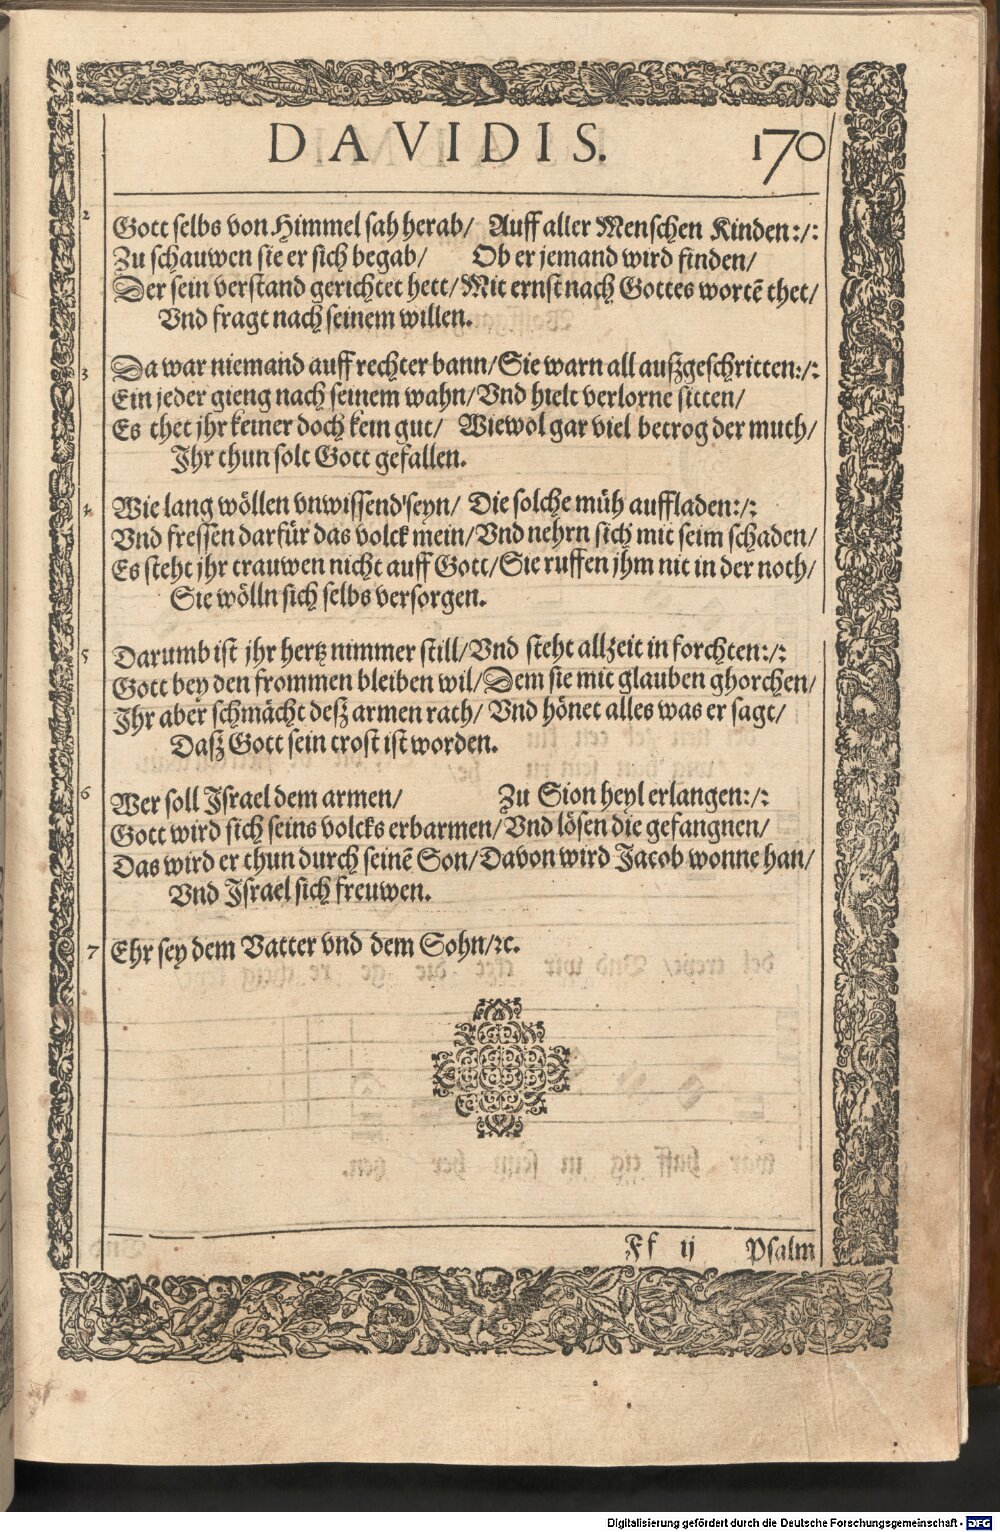 DAVIDIS. 170
2 Gott selbs von Himmel sah herab/ Auff aller Menschen Kinden:/:
Zu schauwen sie er sich begab/ Ob er jemand wird finden/
Der sein verstand gerichtet hett/ Mit ernst nach Gottes wortē thet/
Vnd fragt nach seinem willen.
3 Da war niemand auff rechter bann/ Sie warn all außgeschritten:/:
Ein jeder gieng nach seinem wahn/ Vnd hielt verlorne sitten/
Es thet jhr keiner doch kein gut/ Wiewol gar viel betrog der muth/
Ihr thun solt Gott gefallen.
4 Wie lang wöllen vnwissend'seyn/ Die solche müh auffladen:/:
Vnd fressen darfür das volck mein/ Vnd nehrn sich mit seim schaden/
Es steht jhr trauwen nicht auff Gott/ Sie ruffen jhm nit in der noth/
Sie wölln sich selbs versorgen.
5 Darumb ist jhr hertz nimmer still/ Vnd steht allzeit in forchten:/:
Gott bey den frommen bleiben wil/ Dem sie mit glauben ghorchen/
Ihr aber schmächt deß armen rath/ Vnd hönet alles was er sagt/
Daß Gott sein trost ist worden.
6 Wer soll Israel dem armen/ Zu Sion heyl erlangen:/:
Gott wird sich seins volcks erbarmen/ Vnd lösen die gefangnen/
Das wird er thun durch seinē Son/ Davon wird Jacob wonne han/
Vnd Israel sich freuwen.
7 Ehr sey dem Vatter vnd dem Sohn/ꝛc.
Ff ij Psalm
Digitalisierung gefördert durch die Deutsche Forschungsgemeinschaft - DFG